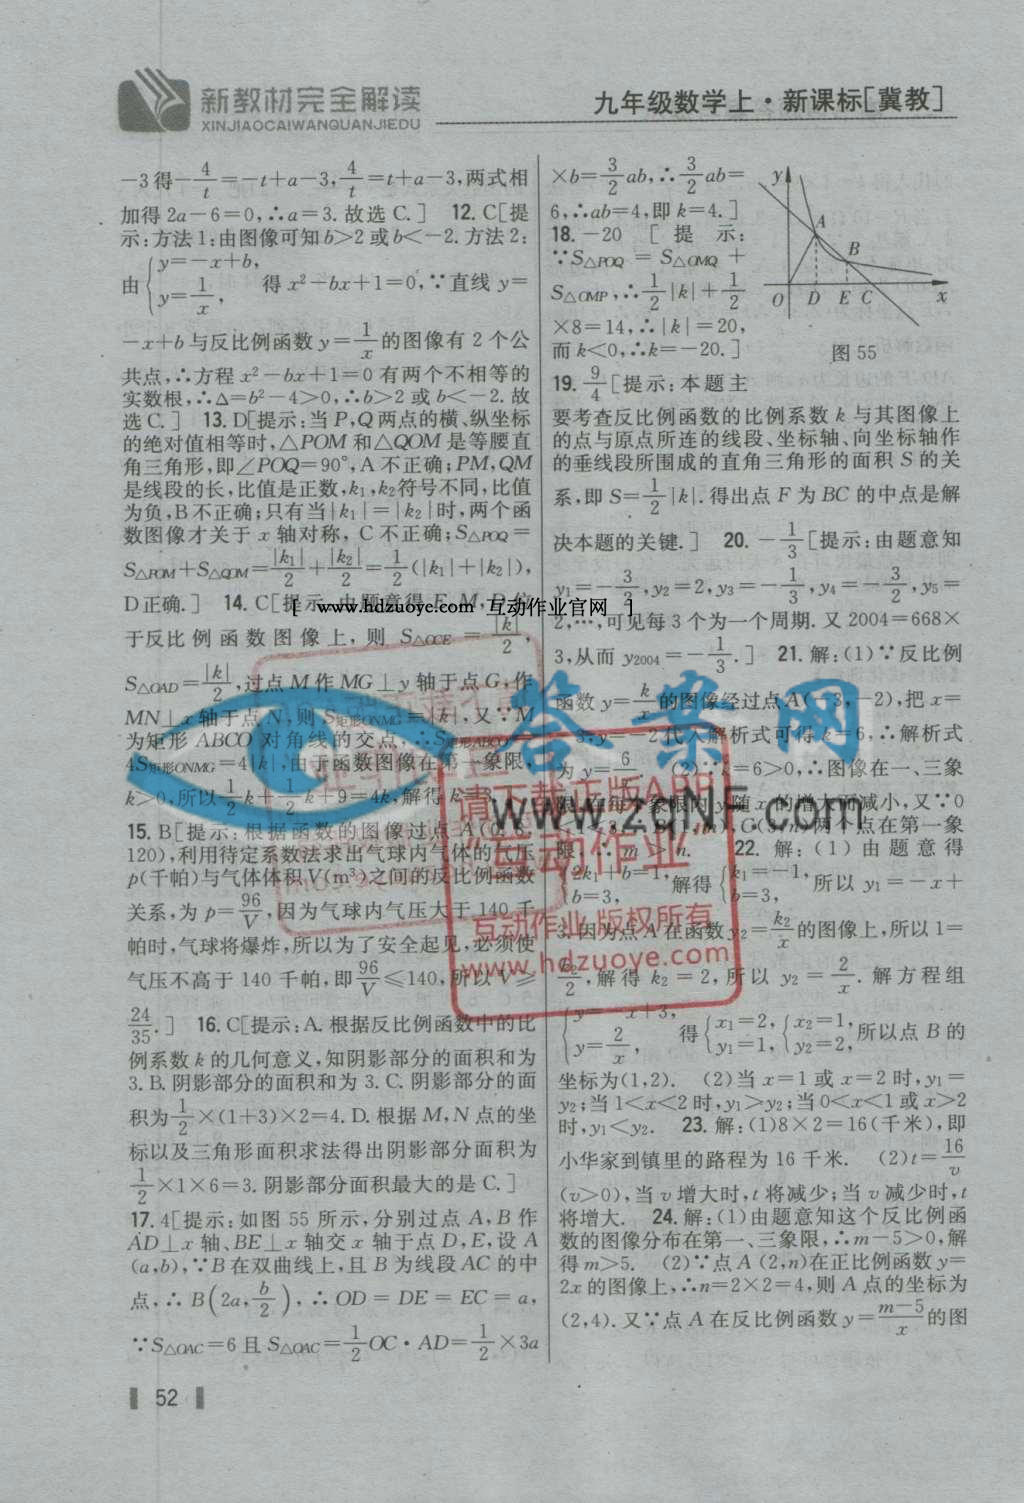 新教材完全解读
XINJIAOCAIWANQUANJIEDU
九年级数学上·新课标[冀教]
-3得-4/t=-t+a-3,4/t=t+a-3,两式相
加得2a-6=0,∴a=3.故选C.] 12.C[提
示:方法1:由图像可知b>2或b<-2.方法2:
由{y=-x+b, y=1/x, 得x²-bx+1=0,∵直线y=
-x+b与反比例函数y=1/x的图像有2个公
共点,∴方程x²-bx+1=0有两个不相等的
实数根,∴Δ=b²-4>0,∴b>2或b<-2.故
选C.] 13.D[提示:当P,Q两点的横、纵坐标
的绝对值相等时,△POM和△QOM是等腰直
角三角形,即∠POQ=90°,A不正确;PM,QM
是线段的长,比值是正数,k₁,k₂符号不同,比值
为负,B不正确;只有当|k₁|=|k₂|时,两个函
数图像才关于x轴对称,C不正确;S△POQ=
S△POM+S△QOM=|k₁|/2+|k₂|/2=1/2(|k₁|+|k₂|),
D正确.] 14.C[提示:由题意得E,M,D位
[ www.hdzuoye.com 互动作业官网 ]
于反比例函数图像上,则S△OCE=|k|/2,
S△OAD=|k|/2,过点M作MG⊥y轴于点G,作
MN⊥x轴于点N,则S矩形ONMG=|k|,又∵M
为矩形ABCO对角线的交点,∴S矩形ABCO=
4S矩形ONMG=4|k|,由于函数图像在第一象限,
k>0,所以1/2k+1/2k+9=4k,解得k=3.]
15.B[提示:根据函数的图像过点A(0.8,
120),利用待定系数法求出气球内气体的气压
p(千帕)与气体体积V(m³)之间的反比例函数
关系,为p=96/V,因为气球内气压大于140千
帕时,气球将爆炸,所以为了安全起见,必须使
气压不高于140千帕,即96/V≤140,所以V≥
24/35.] 16.C[提示:A.根据反比例函数中的比
例系数k的几何意义,知阴影部分的面积和为
3.B.阴影部分的面积和为3.C.阴影部分的面
积为1/2×(1+3)×2=4.D.根据M,N点的坐
标以及三角形面积求法得出阴影部分面积为
1/2×1×6=3.阴影部分面积最大的是C.]
17.4[提示:如图55所示,分别过点A,B作
AD⊥x轴、BE⊥x轴交x轴于点D,E,设A
(a,b),∵B在双曲线上,且B为线段AC的中
点,∴B(2a,b/2),∴OD=DE=EC=a,
∵S△OAC=6且S△OAC=1/2OC·AD=1/2×3a
×b=3/2ab,∴3/2ab=
6,∴ab=4,即k=4.]
18.-20 [提示:
∵S△POQ=S△OMQ+
S△OMP,∴1/2|k|+1/2
×8=14,∴|k|=20,
而k<0,∴k=-20.]
y
A
B
O D E C x
图55
19.9/4[提示:本题主
要考查反比例函数的比例系数k与其图像上
的点与原点所连的线段、坐标轴、向坐标轴作
的垂线段所围成的直角三角形的面积S的关
系,即S=1/2|k|.得出点F为BC的中点是解
决本题的关键.] 20.-1/3[提示:由题意知
y₁=-3/2,y₂=2,y₃=-1/3,y₄=-3/2,y₅=
2,…,可见每3个为一个周期.又2004=668×
3,从而y₂₀₀₄=-1/3.] 21.解:(1)∵反比例
函数y=k/x的图像经过点A(-3,-2),把x=
-3,y=-2代入解析式可得k=6,∴解析式
为y=6/x. (2)∵k=6>0,∴图像在一、三象
限,在每个象限内y随x的增大而减小,又∵0
<1<3,∴B(1,m),C(3,n)两个点在第一象
限,∴m>n. 22.解:(1)由题意得
{2k₁+b=1, b=3, 解得{k₁=-1, b=3, 所以y₁=-x+
3.因为点A在函数y₂=k₂/x的图像上,所以1=
k₂/2,解得k₂=2,所以y₂=2/x.解方程组
{y=-x+3, y=2/x, 得{x₁=2, y₁=1, {x₂=1, y₂=2, 所以点B的
坐标为(1,2). (2)当x=1或x=2时,y₁=
y₂;当1<x<2时,y₁>y₂;当0<x<1或x>2
时,y₁<y₂. 23.解:(1)8×2=16(千米),即
小华家到镇里的路程为16千米. (2)t=16/v
(v>0),当v增大时,t将减少;当v减少时,t
将增大. 24.解:(1)由题意知这个反比例函
数的图像分布在第一、三象限,∴m-5>0,解
得m>5. (2)∵点A(2,n)在正比例函数y=
2x的图像上,∴n=2×2=4,则A点的坐标为
(2,4).又∵点A在反比例函数y=m-5/x的图
答案网
www.zqNF.com
请下载正版APP
互动作业
互动作业 版权所有
www.hdzuoye.com
52